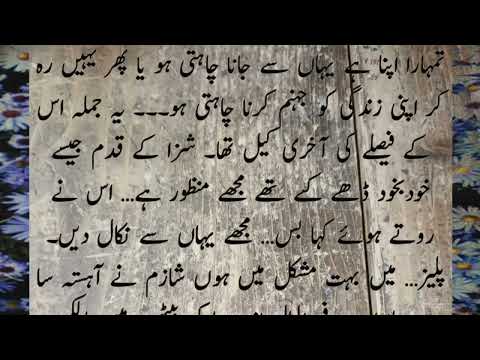 تمہارا اپنا ہے یہاں سے جانا چاہتی ہو یا پھر یہیں رہ
کر اپنی زندگی کو جہنم کرنا چاہتی ہو۔۔۔ یہ جملہ اس
کے فیصلے کی آخری کیل تھا۔ شزا کے قدم جیسے
خودبخود ڈھے گئے تھے مجھے منظور ہے... اس نے
روتے ہوئے کہا بس... مجھے یہاں سے نکال دیں۔
پلیز... میں بہت مشکل میں ہوں شازم نے آہستہ سا